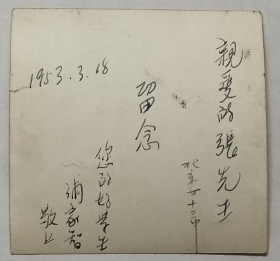 親愛的張先生
北京女十三中
留念
您的好學生
浦家智
敬上
1953.3.18